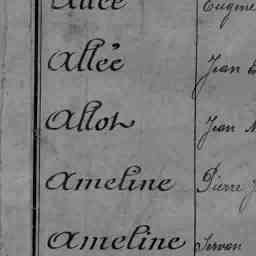 Allée Eugène
Allée Jean
Allot Jean
Ameline Pierre
Ameline Servan